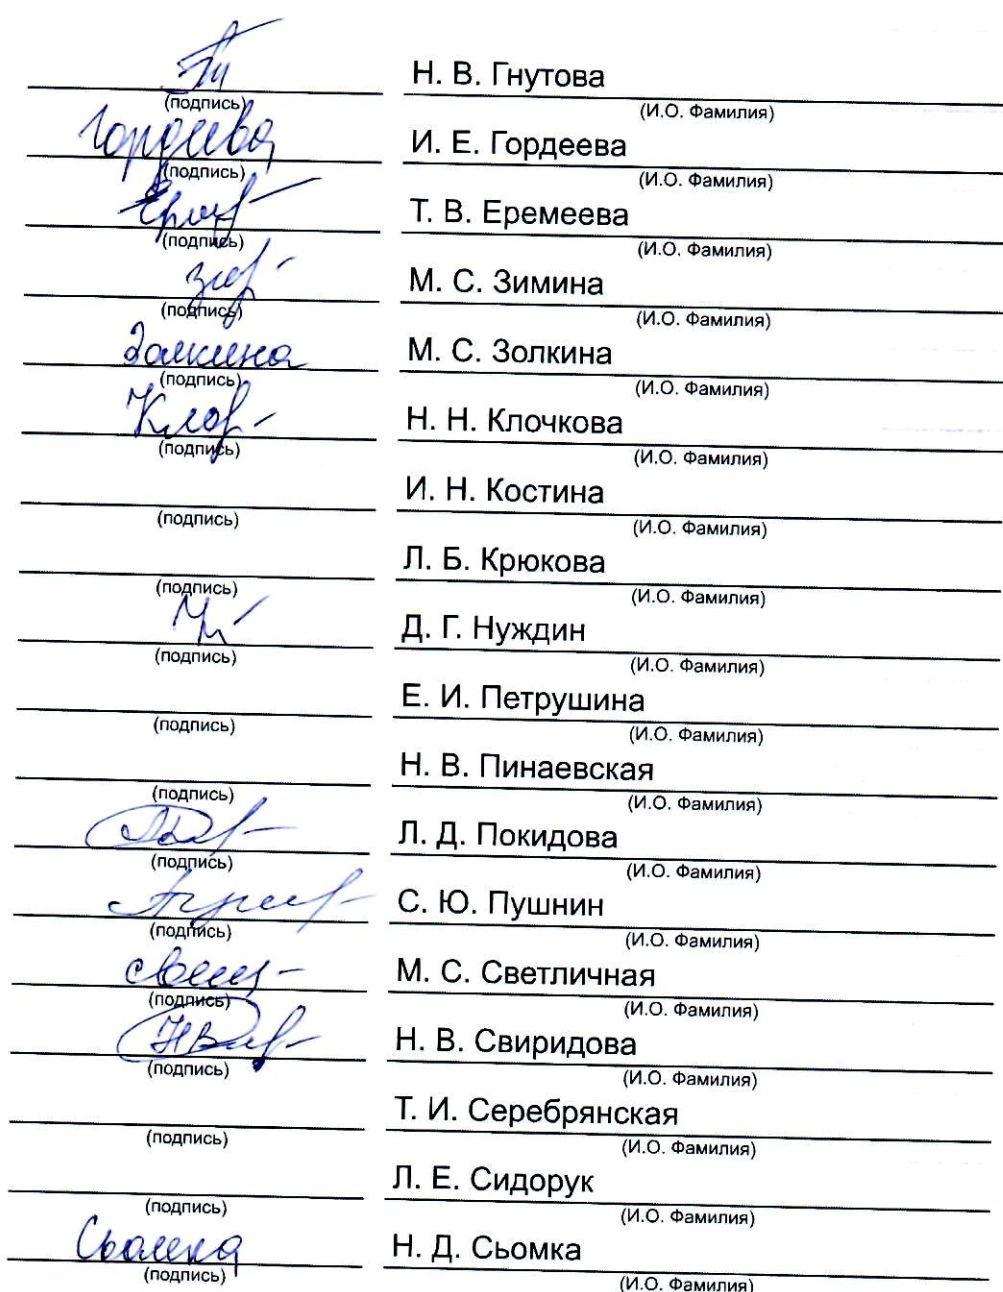 Н. В. Гнутова
(подпись) (И.О. Фамилия)
Гордеева И. Е. Гордеева
(подпись) (И.О. Фамилия)
Т. В. Еремеева
(подпись) (И.О. Фамилия)
М. С. Зимина
(подпись) (И.О. Фамилия)
Золкина М. С. Золкина
(подпись) (И.О. Фамилия)
Н. Н. Клочкова
(подпись) (И.О. Фамилия)
И. Н. Костина
(подпись) (И.О. Фамилия)
Л. Б. Крюкова
(подпись) (И.О. Фамилия)
Д. Г. Нуждин
(подпись) (И.О. Фамилия)
Е. И. Петрушина
(подпись) (И.О. Фамилия)
Н. В. Пинаевская
(подпись) (И.О. Фамилия)
Л. Д. Покидова
(подпись) (И.О. Фамилия)
С. Ю. Пушнин
(подпись) (И.О. Фамилия)
М. С. Светличная
(подпись) (И.О. Фамилия)
Н. В. Свиридова
(подпись) (И.О. Фамилия)
Т. И. Серебрянская
(подпись) (И.О. Фамилия)
Л. Е. Сидорук
(подпись) (И.О. Фамилия)
Сьомка Н. Д. Сьомка
(подпись) (И.О. Фамилия)